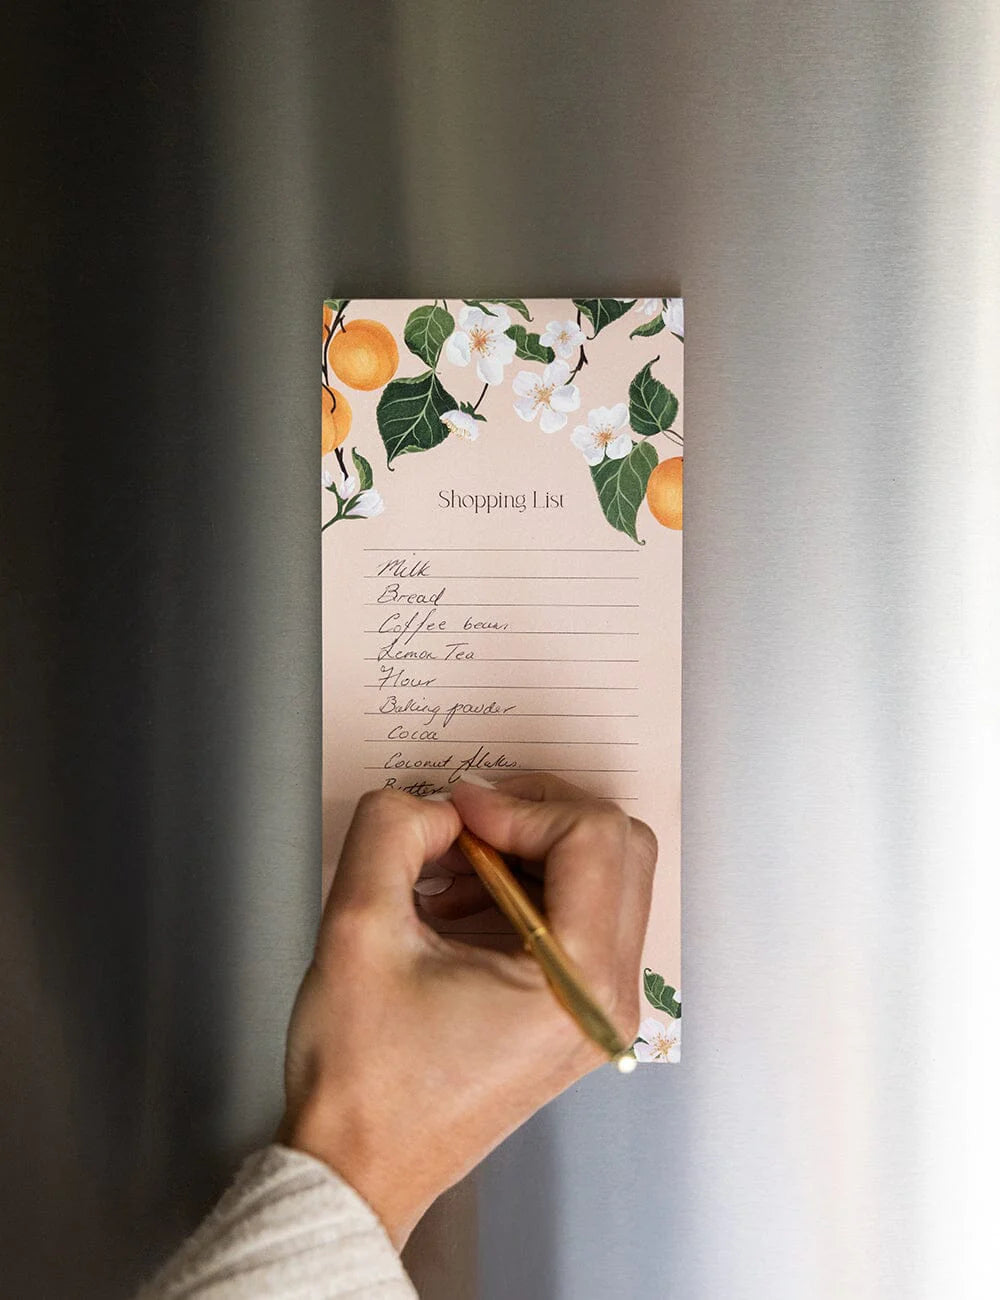 Shopping List
Milk
Bread
Coffee beans
Lemon Tea
Flour
Baking powder
Cocoa
Coconut flakes.
Butter